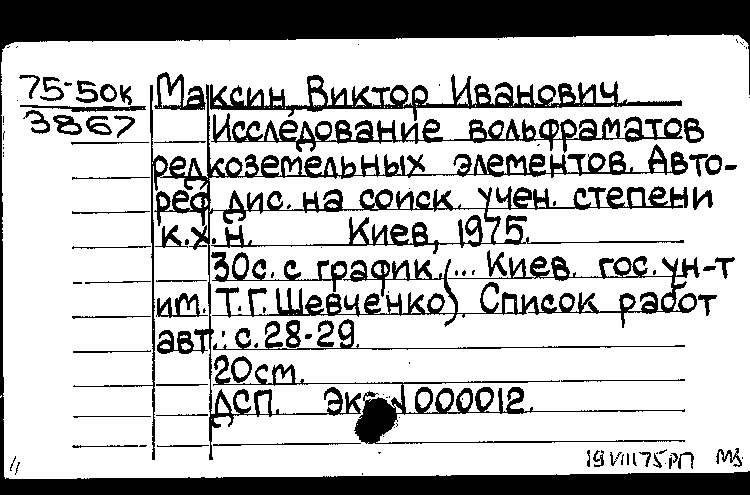 75-5ок Максин, Виктор Иванович.
3867 Исследование вольфраматов
редкоземельных элементов. Авто-
реф. дис. на соиск. учен. степени
к.х.н. Киев, 1975.
30с. с график. (... Киев. гос. ун-т
им. Т.Г.Шевченко). Список работ
авт.: с.28-29.
20см.
ДСП. №000012.
19 VIII 75 РП